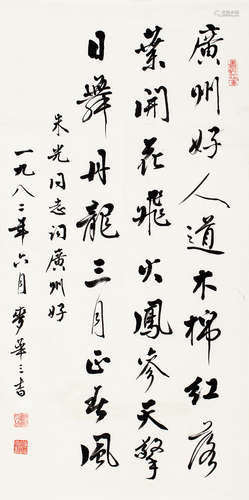 廣州好人道木棉红落
葉開花飛火鳳參天擎
日舞丹龍三月正春風
朱光同志词廣州好
一九八二年六月麥華三書